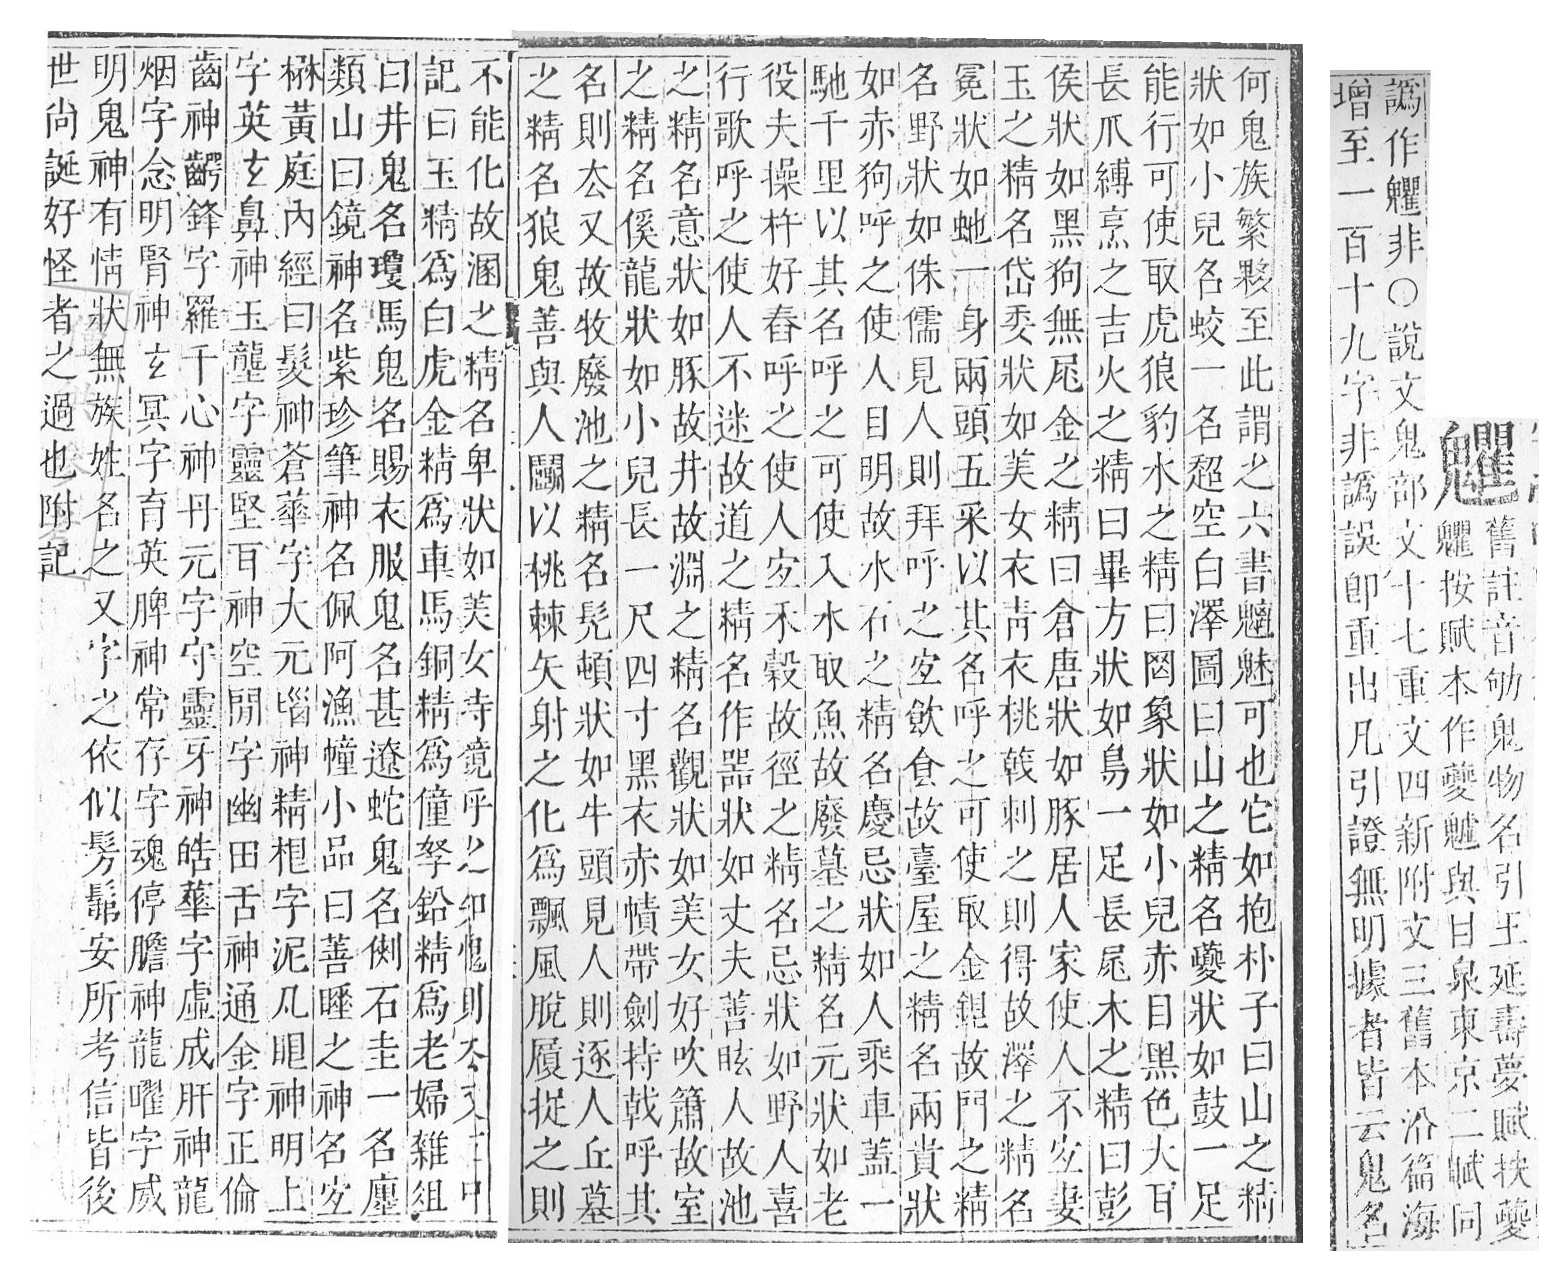 魖
舊註音劬鬼物名引王延壽夢賦抶夔
魖按賦本作夔魖與甘泉東京二賦同
譌作魖非○說文鬼部文十七重文四新附文三舊本沿篇海
增至一百十九字非譌誤卽重出凡引證無明據者皆云鬼名
何鬼族繁夥至此謂之六書魑魅可也它如抱朴子曰山之精
狀如小兒名蛟一名超空白澤圖曰山之精名夔狀如鼓一足
能行可使取虎狼豹水之精曰罔象狀如小兒赤目黑色大耳
長爪縛烹之吉火之精曰畢方狀如鳥一足長尾木之精曰彭
侯狀如黑狗無尾金之精曰倉唐狀如豚居人家使人不宐妻
玉之精名岱委狀如美女衣青衣桃戟刺之則得故澤之精名
冕狀如虵一身兩頭五采以其名呼之可使取金銀故門之精
名野狀如侏儒見人則拜呼之宐飲食故臺屋之精名兩貴狀
如赤狗呼之使人目明故水石之精名慶忌狀如人乘車蓋一
馳千里以其名呼之可使入水取魚故廢墓之精名元狀如老
役夫操杵好舂呼之使人宐禾穀故徑之精名忌狀如野人喜
行歌呼之使人不迷故道之精名作器狀如丈夫善眩人故池
之精名意狀如豚故井故淵之精名觀狀如美女好吹簫故室
之精名傒龍狀如小兒長一尺四寸黑衣赤幘帶劍持戟呼其
名則厺又故牧廢池之精名髡頓狀如牛頭見人則逐人丘墓
之精名狼鬼善與人鬭以桃棘矢射之化爲飄風脫履捉之則
不能化故溷之精名卑狀如美女寺鏡呼之卽愧則厺又
記曰玉精爲白虎金精爲車馬銅精爲僮孥鉛精爲老婦雜俎
曰井鬼名瓊馬鬼名賜衣服鬼名甚遼蛇鬼名侧石圭一名麈
類山曰鏡神名紫珍筆神名佩阿漁幢小品曰善睡之神名宐
楙黃庭內經曰髮神蒼華字大元𡿺神精根字泥丸眼神明上
字英玄鼻神玉壟字靈堅耳神空閒字幽田舌神通金字正倫
齒神齶鋒字羅千心神丹元字守靈牙神皓華字虛成肝神龍
烟字念明腎神玄冥字育英脾神常存字魂停膽神龍曜字威
明鬼神有情狀無族姓名之又字之依似髣髴安所考信皆後
世尚誕好怪者之過也附記